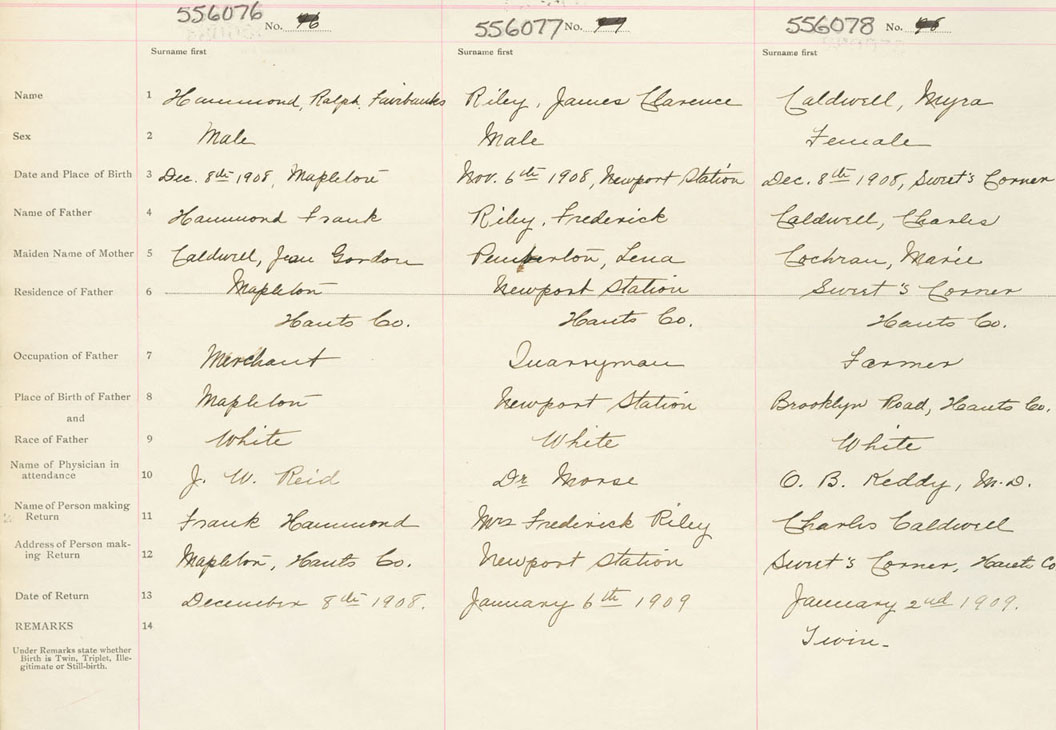 556076 No.
556077 No.
556078 No.
Surname first
Surname first
Surname first
Name 1 Hammond, Ralph Fairbanks Riley, James Clarence Caldwell, Myra
Sex 2 Male Male Female
Date and Place of Birth 3 Dec. 8th 1908, Mapleton Nov. 6th 1908, Newport Station Dec. 8th 1908, Sweet's Corner
Name of Father 4 Hammond Frank Riley, Frederick Caldwell, Charles
Maiden Name of Mother 5 Caldwell, Jean Gordon Pemberton, Lena Cochran, Marie
Residence of Father 6 Mapleton Newport Station Sweet's Corner
Hants Co. Hants Co. Hants Co.
Occupation of Father 7 Merchant Quarryman Farmer
Place of Birth of Father 8 Mapleton Newport Station Brooklyn Road, Hants Co.
and
Race of Father 9 White White White
Name of Physician in
attendance 10 J. W. Reid Dr Morse O. B. Keddy, M.D.
Name of Person making
Return 11 Frank Hammond Mrs Frederick Riley Charles Caldwell
Address of Person mak-
ing Return 12 Mapleton, Hants Co. Newport Station Sweet's Corner, Hants Co
Date of Return 13 December 8th 1908. January 6th 1909 January 2nd 1909.
REMARKS 14 Twin.
Under Remarks state whether
Birth is Twin, Triplet, Ille-
gitimate or Still-birth.